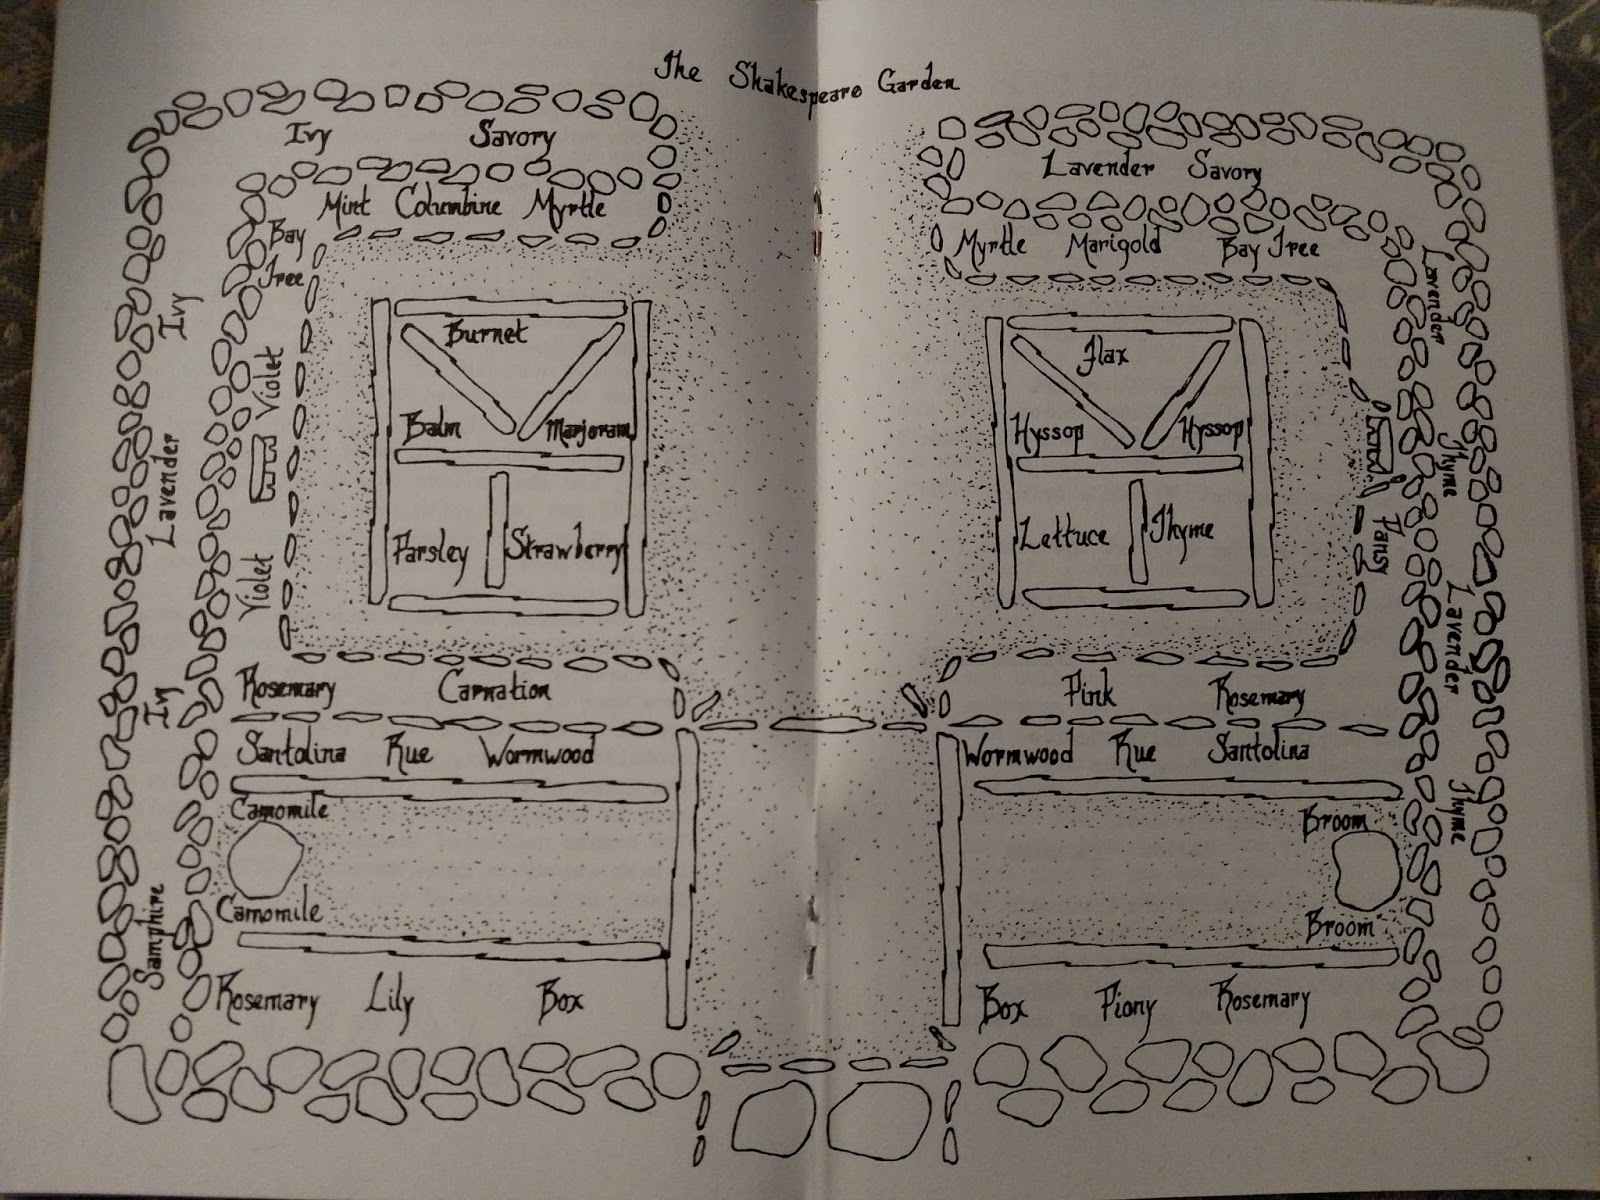 The Shakespeare Garden
Ivy Savory
Mint Columbine Myrtle
Bay
Tree
Ivy
Violet
Lavender
Violet
Ivy
Samphire
Burnet
Balm Marjoram
Parsley Strawberry
Rosemary Carnation
Santolina Rue Wormwood
Camomile
Camomile
Rosemary Lily Box
Lavender Savory
Myrtle Marigold Bay Tree
Lavender
Thyme
Pansy
Lavender
Thyme
Flax
Hyssop Hyssop
Lettuce Thyme
Pink Rosemary
Wormwood Rue Santolina
Broom
Broom
Box Piony Rosemary